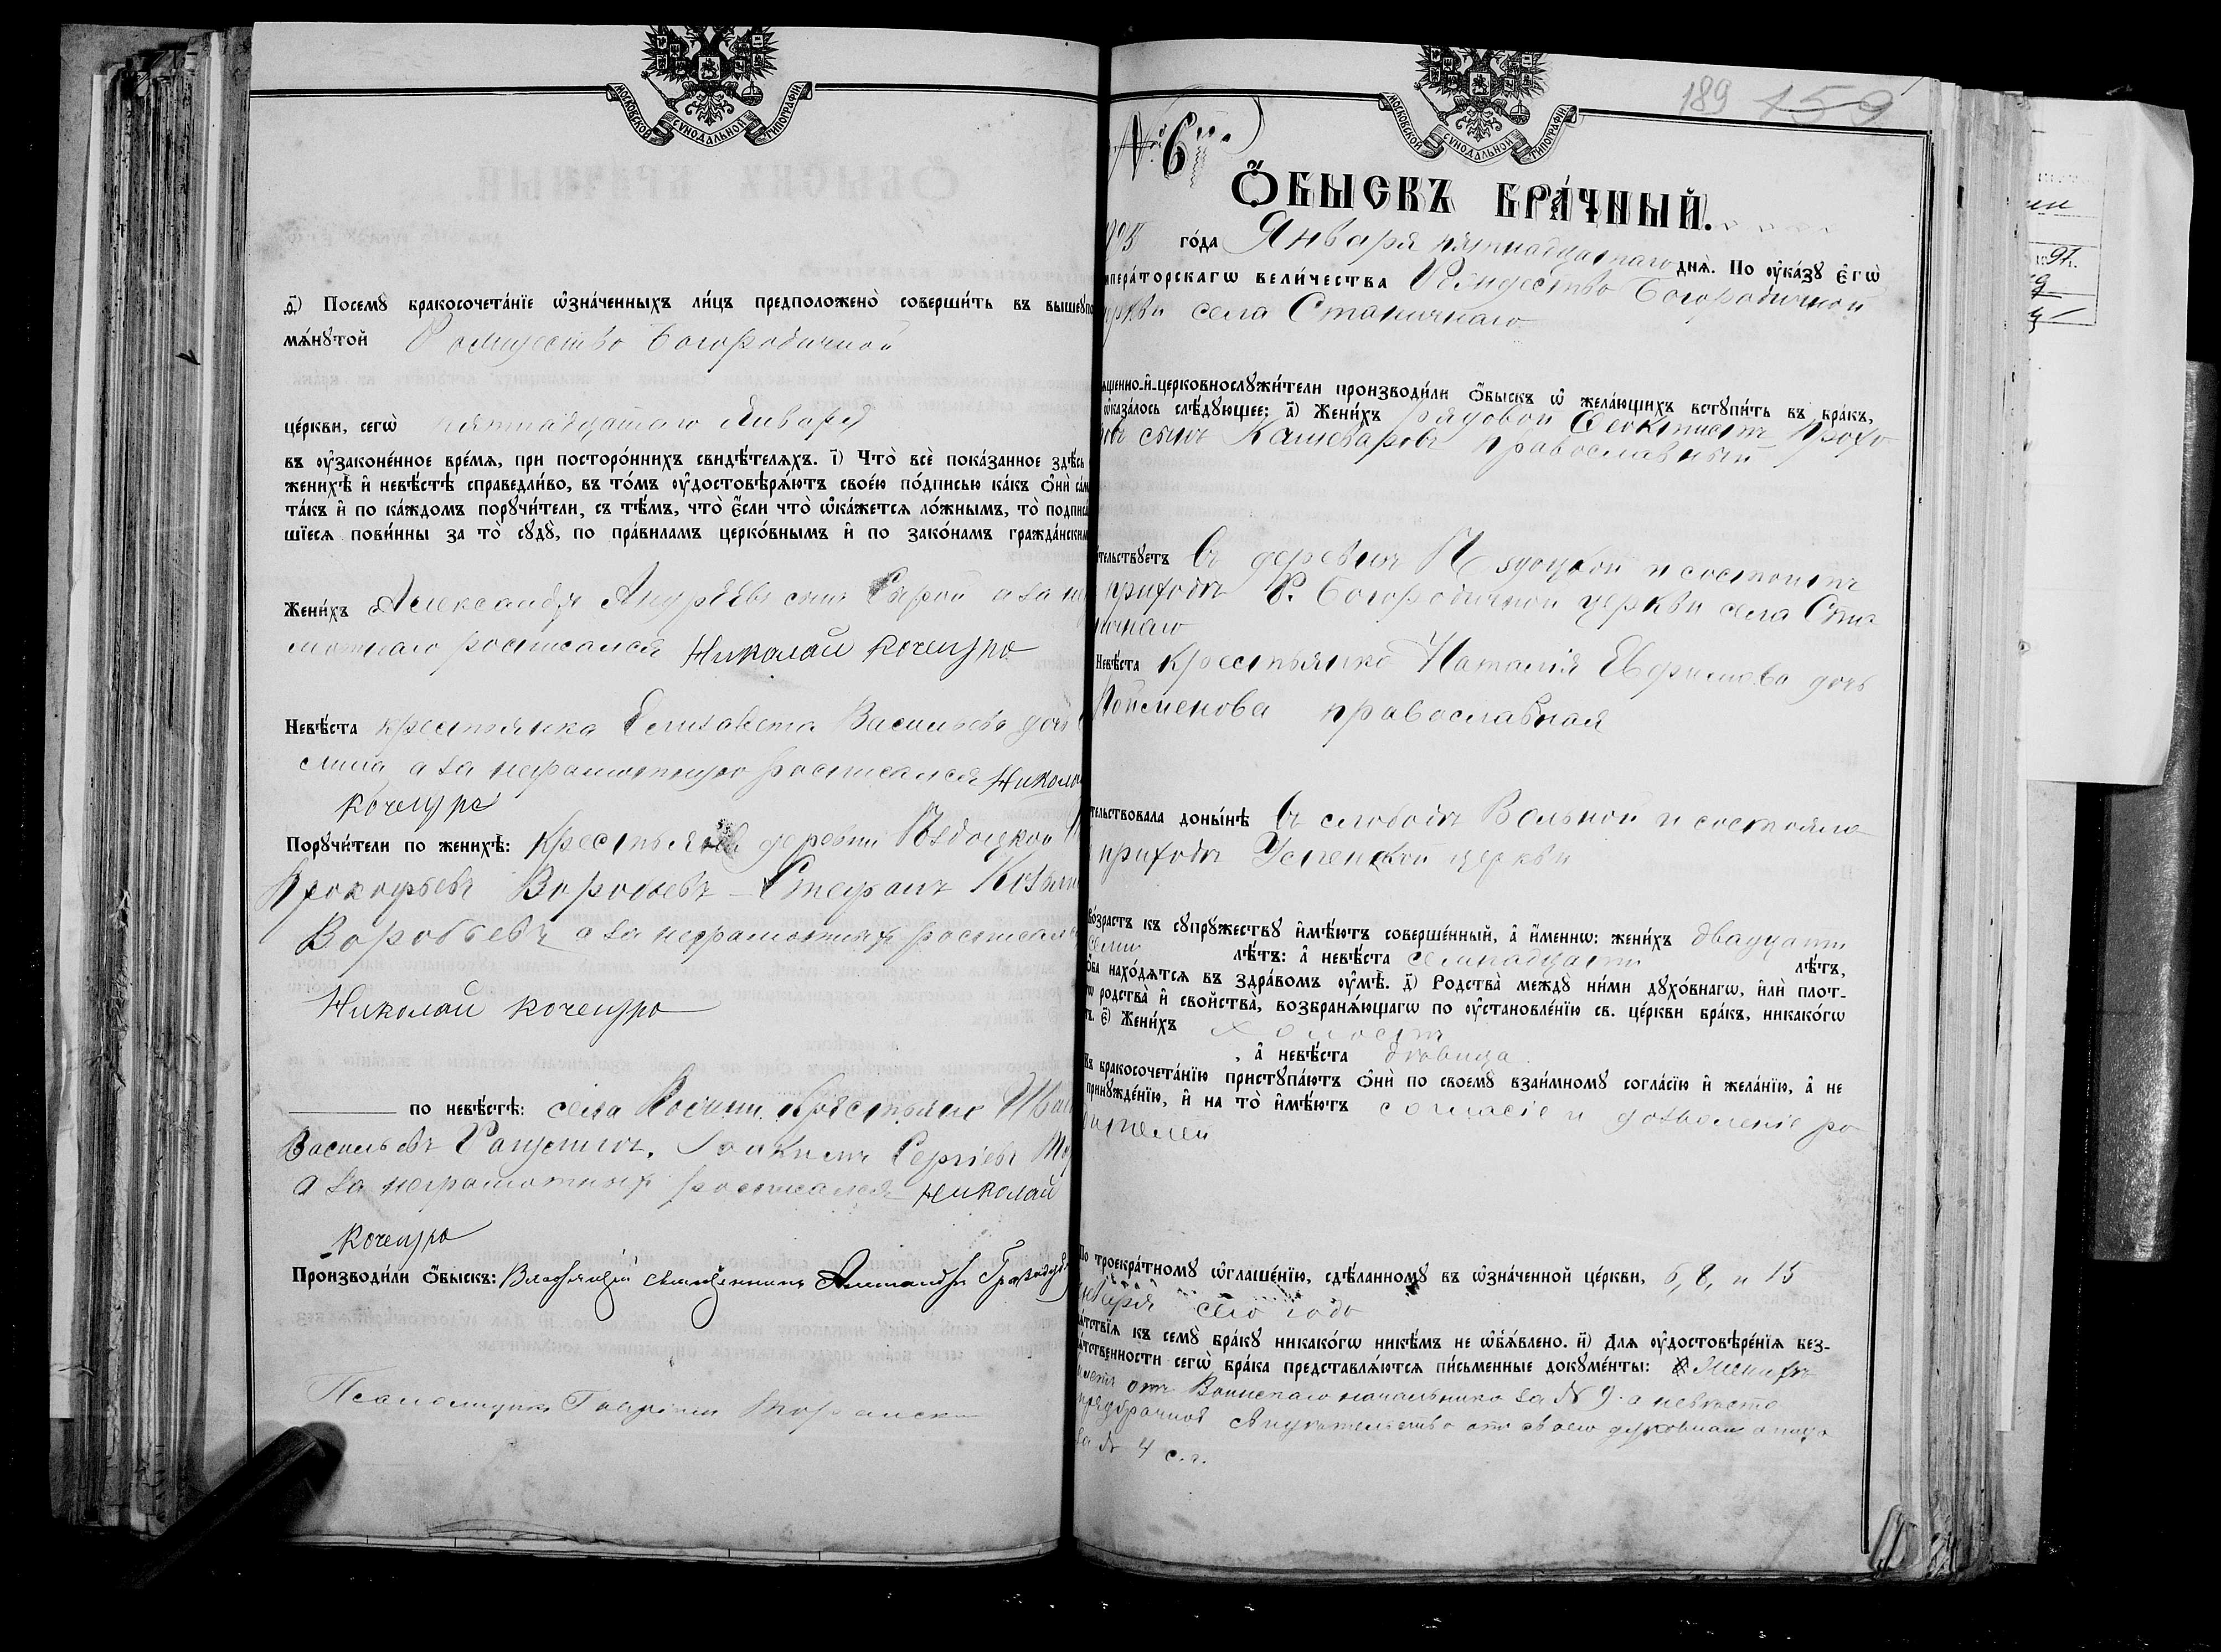 МОСКОВСКОЙ СѴНОДАЛЬНОЙ ТИПОГРАФІИ
Посемꙋ̀ бракосочета́нїе ѡ҆зна́ченныхъ ли́цъ предположено̀ соверши́ть въ вышеꙋпо
мѧ́нꙋтой Рождество Богородичной
це́ркви, сегѡ̀ пятнадцатаго Января
въ ᲂу҆зако́ненное вре́мѧ, при посторо́ннихъ свидѣ́телѧхъ. і҃) Что̀ всѐ пока́занное здѣ́сь
женихѣ̀ и҆ невѣ́стѣ справедли́во, въ то́мъ ᲂу҆достовѣрѧ́ютъ свое́ю по́дписью ка́къ ѻ҆нѝ са́м
та́къ и҆ по ка́ждомъ порꙋчи́тели, съ тѣ́мъ, что̀ є҆́сли что̀ ѡ҆ка́жется ло́жнымъ, то̀ подписа́
шїеся пови́нны за то̀ сꙋдꙋ̀, по пра́виламъ церко́внымъ и҆ по зако́намъ гражда́нским
Жени́хъ Александръ Андреевъ сынъ Сырой а за не
грамотнаго росписался Николай Кочеуро
Невѣ́ста крестьянка Елизавета Васильева дочь
а за неграмотную росписался Никола
Кочеура
Порꙋчи́тели по женихѣ̀: Крестьяне деревни Пѣдоцкой
Прокофьевъ Воробьевъ Стефанъ Козьми
Воробьевъ а за неграмотныхъ росписался
Николай Кочеуро
по невѣ́стѣ: села крестьяне Иван
Васильевъ Сергіевъ
а за неграмотныхъ росписался Николай
Кочеуро
Производи́ли ѻ҆́быскъ: священникъ
Псаломщикъ
МОСКОВСКОЙ СѴНОДАЛЬНОЙ ТИПОГРАФІИ
189 159
№ 6й
Ѻ҆́БЫСКЪ БРА́ЧНЫЙ.
905 го́да Января пятнадцатаго днѧ̀. По ᲂу҆ка́зꙋ є҆гѡ̀
мпера́торскагѡ вели́чества Рождество Богородичной
еркви села Станичнаго
ященно-и҆-церковнослꙋжи́тели производи́ли ѻ҆́быскъ ѡ҆ жела́ющихъ встꙋпи́ть въ бра́къ,
ѡ҆каза́лось слѣ́дꙋющее: а҃) Жени́хъ рядовой Феоктистъ Прохо
ровъ сынъ Кашеваровъ православный
тельствꙋетъ въ деревнѣ Пѣдоцкой и состоитъ
приходѣ Р. Богородичной церкви села Ста
ничнаго
Невѣ́ста крестьянка Наталія Евфимова дочь
Пойменова православная
тельствовала доны́нѣ въ слободѣ Вольной и состояла
приходѣ Успенской церкви
во́зрастъ къ сꙋпрꙋ́жествꙋ и҆мѣ́ютъ соверше́нный, а҆ и҆́меннѡ: жени́хъ двадцати
семи лѣ́тъ: а҆ невѣ́ста семнадцати лѣ́тъ,
ѻ҆́ба нахо́дятся въ здра́вомъ ᲂу҆мѣ̀. д҃) Родства̀ междꙋ̀ ни́ми дꙋхо́внагѡ, и҆лѝ плот-
гѡ родства̀ и҆ сво́йства, возбранѧ́ющагѡ по ᲂу҆становле́нїю св. це́ркви бра́къ, никако́гѡ
тъ. є҃) Жени́хъ холостъ
, а҆ невѣ́ста дѣвица
Къ бракосочета́нїю пристꙋпа́ютъ ѻ҆нѝ по своемꙋ̀ взаи́мномꙋ согла́сїю и҆ жела́нїю, а҆ не
принꙋжде́нїю, и҆ на то̀ и҆мѣ́ютъ согласіе и дозволеніе ро
дителей
По троекра́тномꙋ ѡ҆глаше́нїю, сдѣ́ланномꙋ въ ѡ҆зна́ченной це́ркви, 6, 8, и 15
нваря сего года
ѧ́тствїя къ семꙋ̀ бра́кꙋ никако́гѡ никѣ́мъ не ѡ҆б̾ѧ́влено. и҃) Для ᲂу҆достовѣре́нїя без-
ѧ́тственности сегѡ̀ бра́ка представлѧ́ются пи́сьменные докꙋме́нты: Женихъ
билетъ отъ Воинскаго начальника за № 9. а невѣста
предбрачное свидѣтельство отъ своего духовнаго отца
за № 4 с.г.